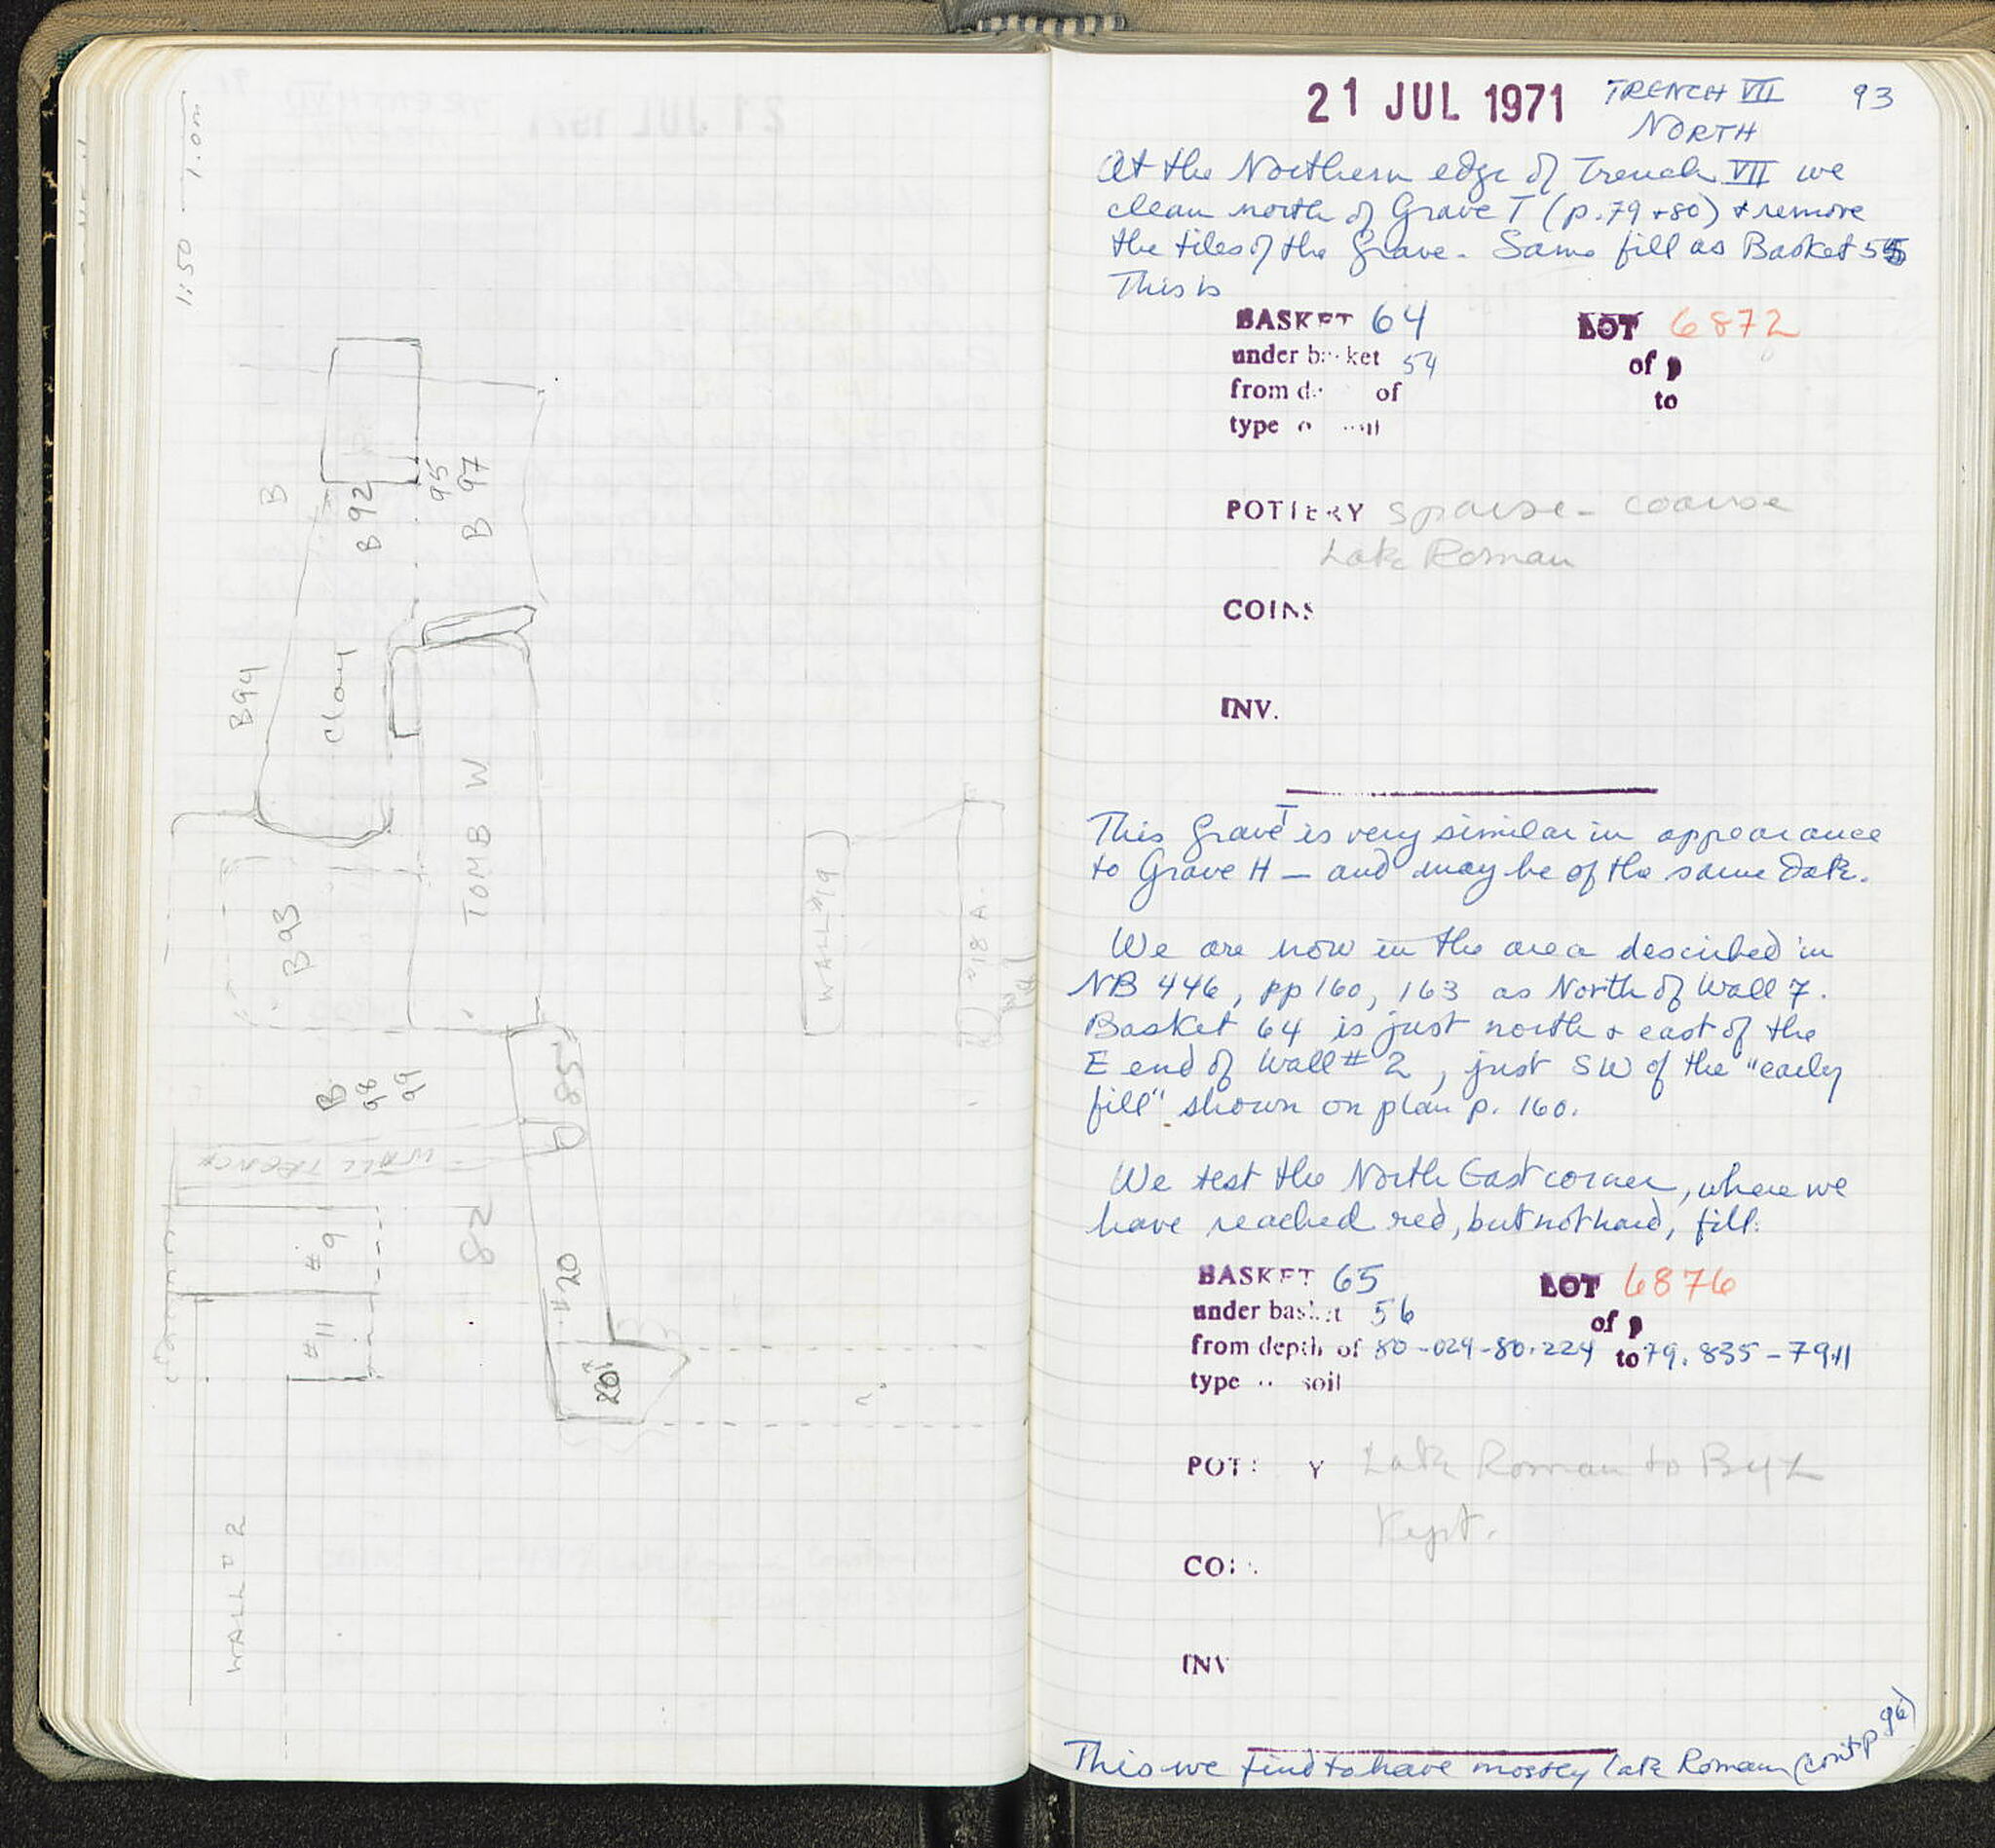 1:50 1.0m
B
B92
95
B 97
B94
clay
TOMB W
B93
B
98
99
B85
WALL TRENCH
82
#9
#11
#20
20A
WALL #2
WALL #19
#18 A
21 JUL 1971 TRENCH VII 93
NORTH
At the Northern edge of Trench VII we
clean north of Grave T (p. 79 + 80) & remove
the tiles of the Grave. Same fill as Basket 55
This is
BASKET 64 LOT 6872
under basket 54 of p
from d of to
type o soil
POTTERY sparse - coarse
Late Roman
COINS
INV.
This Grave T is very similar in appearance
to Grave H — and may be of the same date.
We are now in the area described in
NB 446, pp 160, 163 as North of Wall 7.
Basket 64 is just north & east of the
E end of Wall # 2, just SW of the "early
fill" shown on plan p. 160.
We test the North East corner, where we
have reached red, but not hard, fill:
BASKET 65 LOT 6876
under basket 56 of p
from depth of 80-024-80.224 to 79.835-79.11
type soil
POT Y Late Roman to Byz
Kept.
COI
INV
This we find to have mostly late Roman (cont p 96)